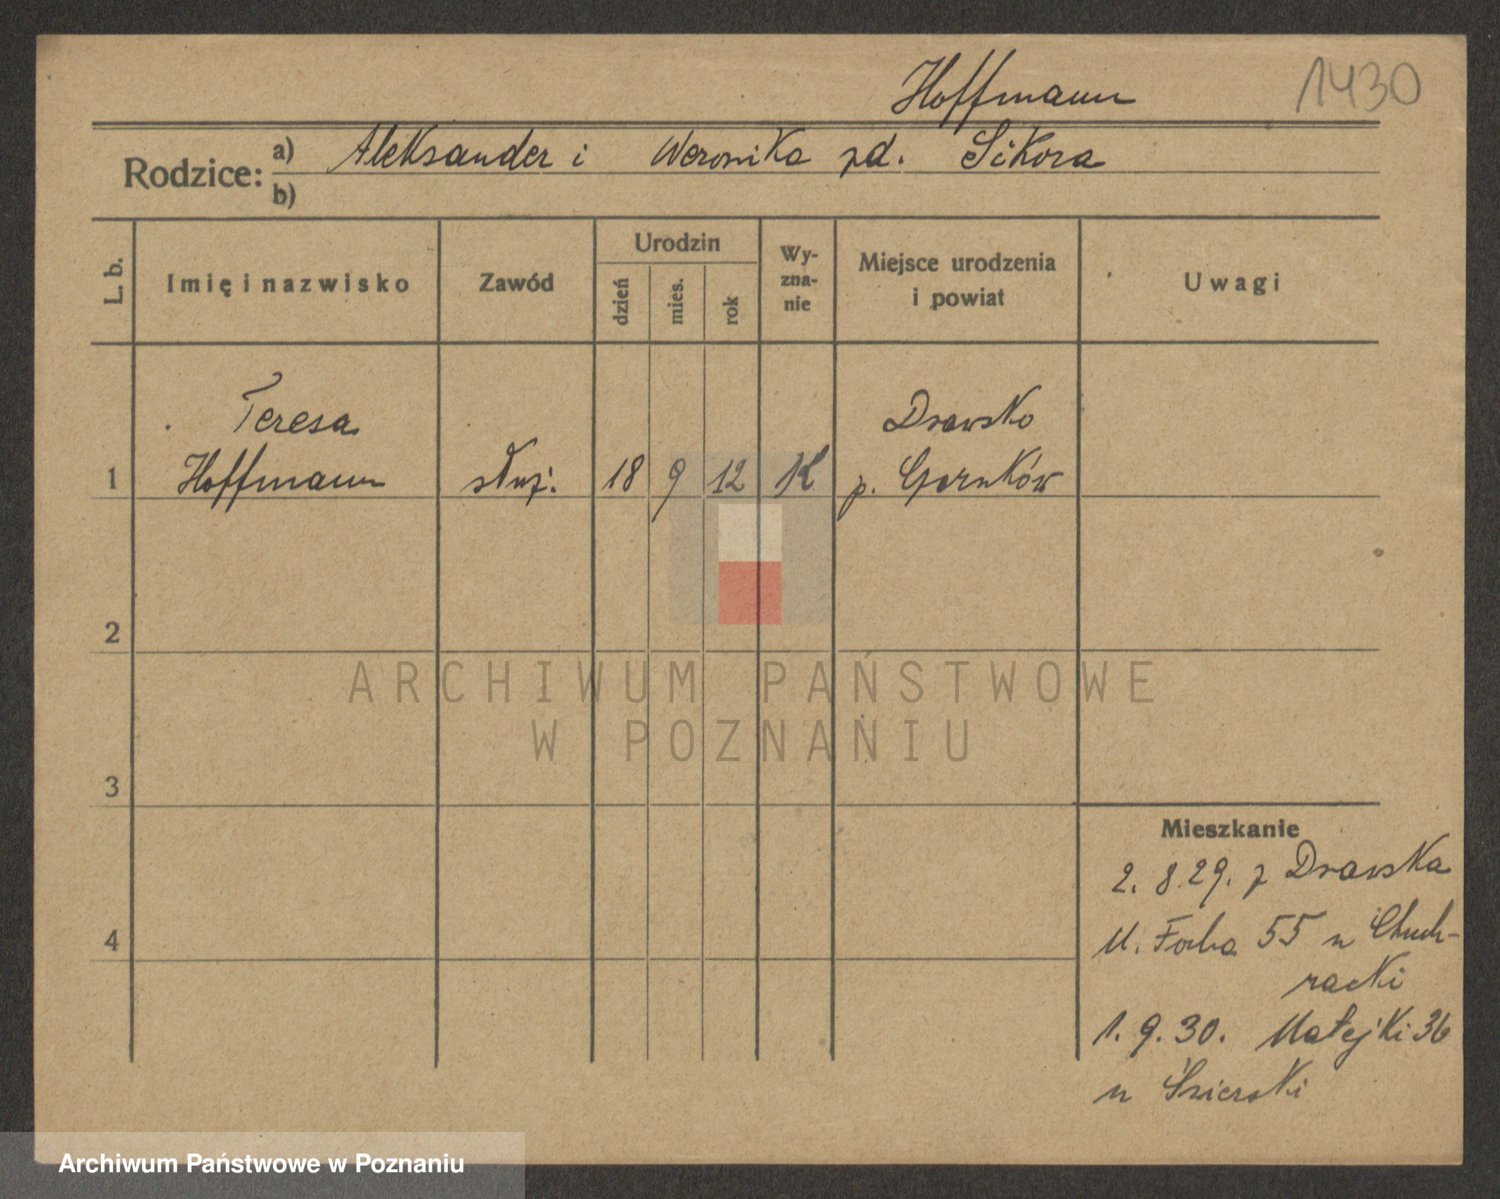 Hoffmann 1430
Rodzice: a) Aleksander i Weronika zd. Sikora
b)
L. b. Imię i nazwisko Zawód Urodzin dzień mies. rok Wyznanie Miejsce urodzenia i powiat Uwagi
Teresa Drawsko
1 Hoffmann służ. 18 9 12 K p. Czarnków
2
ARCHIWUM PAŃSTWOWE
W POZNANIU
3
Mieszkanie
2. 8. 29. z Drawska
4
M. Focha 55 u
1. 9. 30. Matejki 36
u
Archiwum Państwowe w Poznaniu